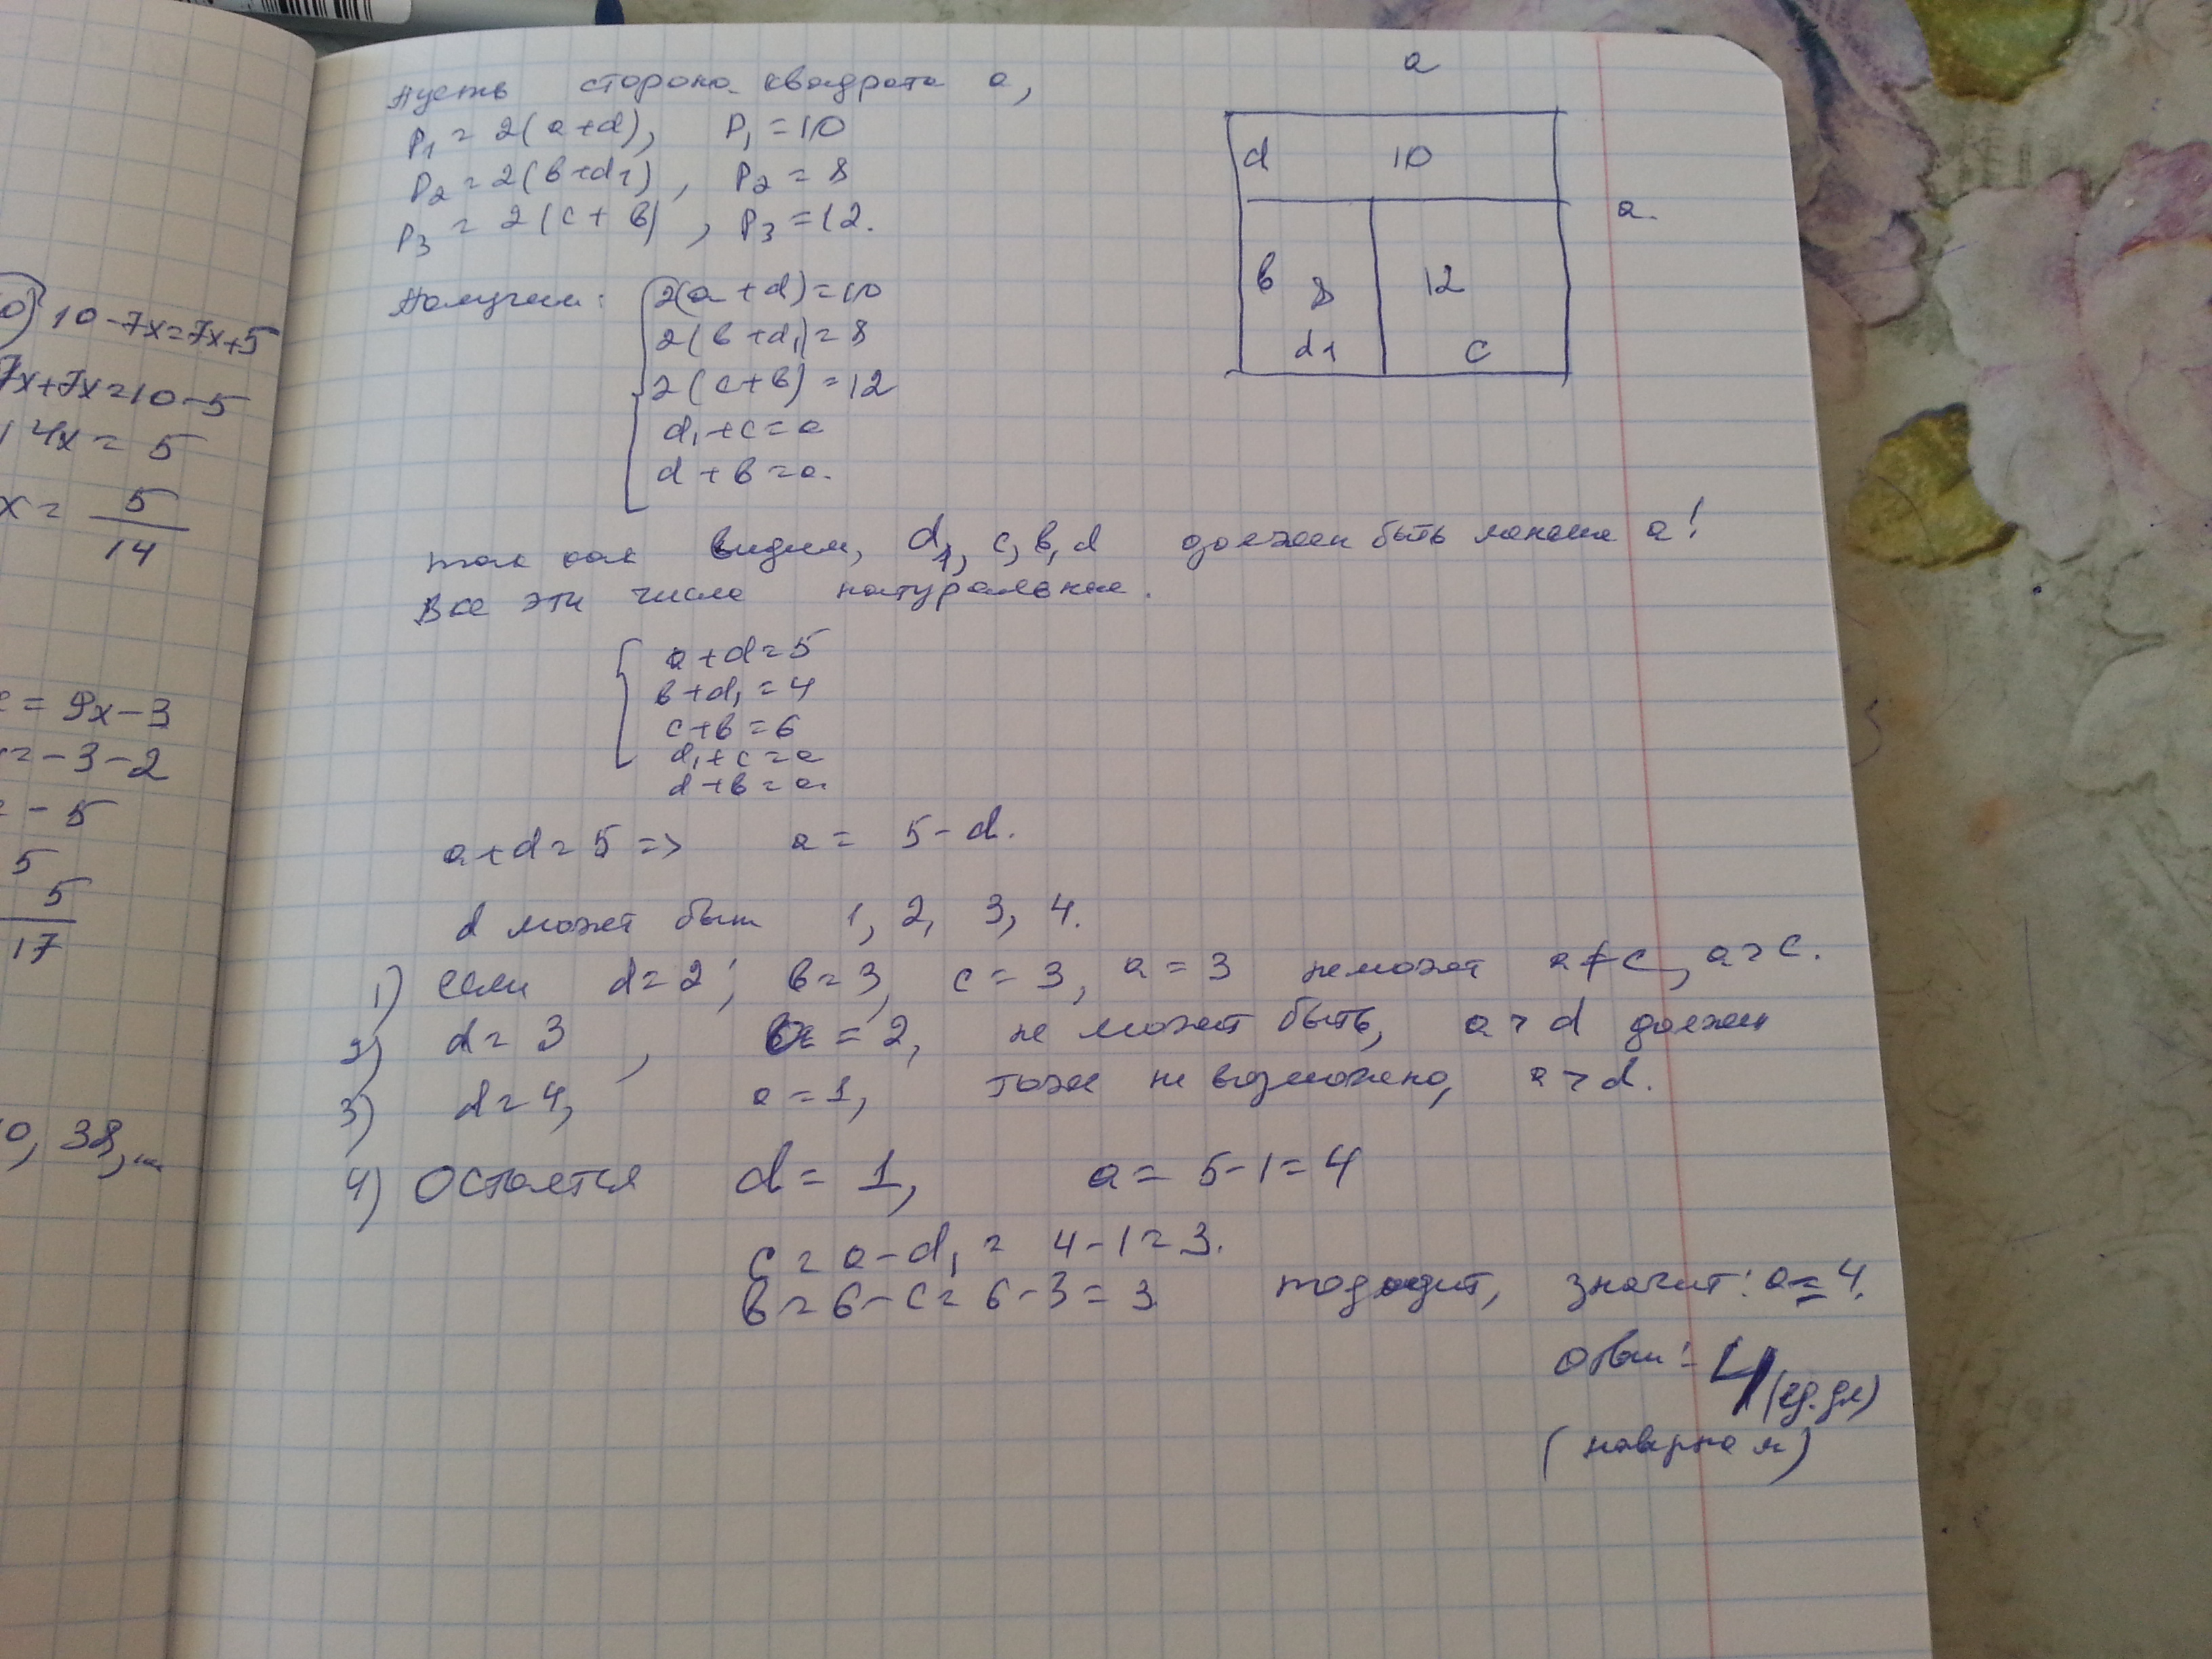 0) 10-7x=7x+5
7x+7x=10-5
14x = 5
x = 5/14
= 9x-3
=-3-2
= -5
5
5
17
0, 38, ...
Пусть сторона квадрата a,
P₁ = 2(a+d), P₁ = 10
P₂ = 2(в+d₁), P₂ = 8
P₃ = 2(c+в), P₃ = 12.
a
d 10
a.
в 8 12
d₁ c
Получим: 2(a+d)=10
2(в+d₁)=8
2(c+в)=12
d₁+c=a
d+в=a.
так как видим, d₁, c, в, d должен быть меньше a!
Все эти числа натуральные.
a+d=5
в+d₁=4
c+в=6
d₁+c=a
d+в=a.
a+d=5 => a = 5-d.
d может быть 1, 2, 3, 4.
1) если d=2; в=3, c=3, a=3 неможет a≠c, a>c.
2) d=3, a=2, не может быть, a>d должен
3) d=4, a=1, тоже не возможно, a>d.
4) Остается d=1, a=5-1=4
c=a-d₁= 4-1=3.
в=6-c=6-3=3 подходит, значит: a=4.
ответ: 4 (ед.дл)